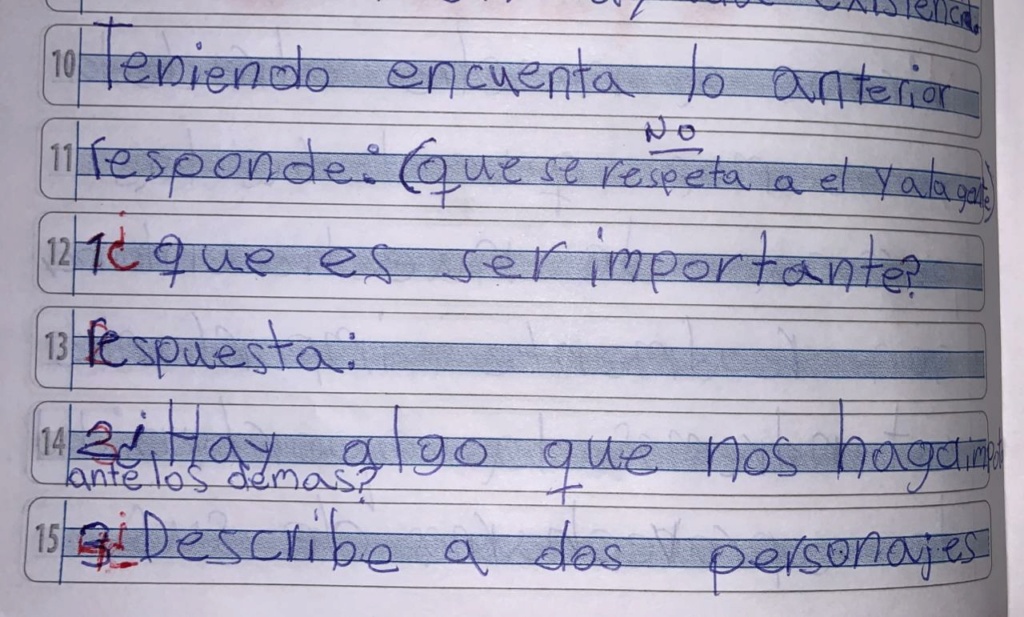 existencia.
10 Teniendo encuenta lo anterior
NO
11 responde: (que se respeta a el y a la gente)
12 1¿ que es ser importante?
13 Respuesta:
14 2¿ Hay algo que nos haga
ante los demas?
15 3¿ Describe a dos personajes